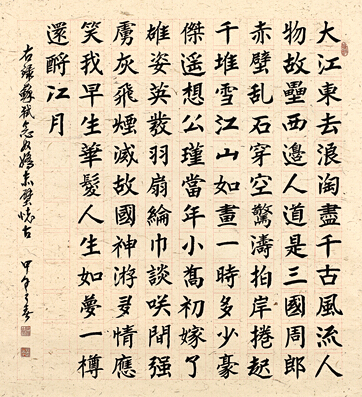 大江東去浪淘盡千古風流人
物故壘西邊人道是三國周郎
赤壁乱石穿空驚濤拍岸捲起
千堆雪江山如畫一時多少豪
傑遥想公瑾當年小喬初嫁了
雄姿英發羽扇綸巾談咲間强
虜灰飛煙滅故國神游多情應
笑我早生華髮人生如夢一樽
還酹江月
右録蘇軾念奴嬌赤壁懷古